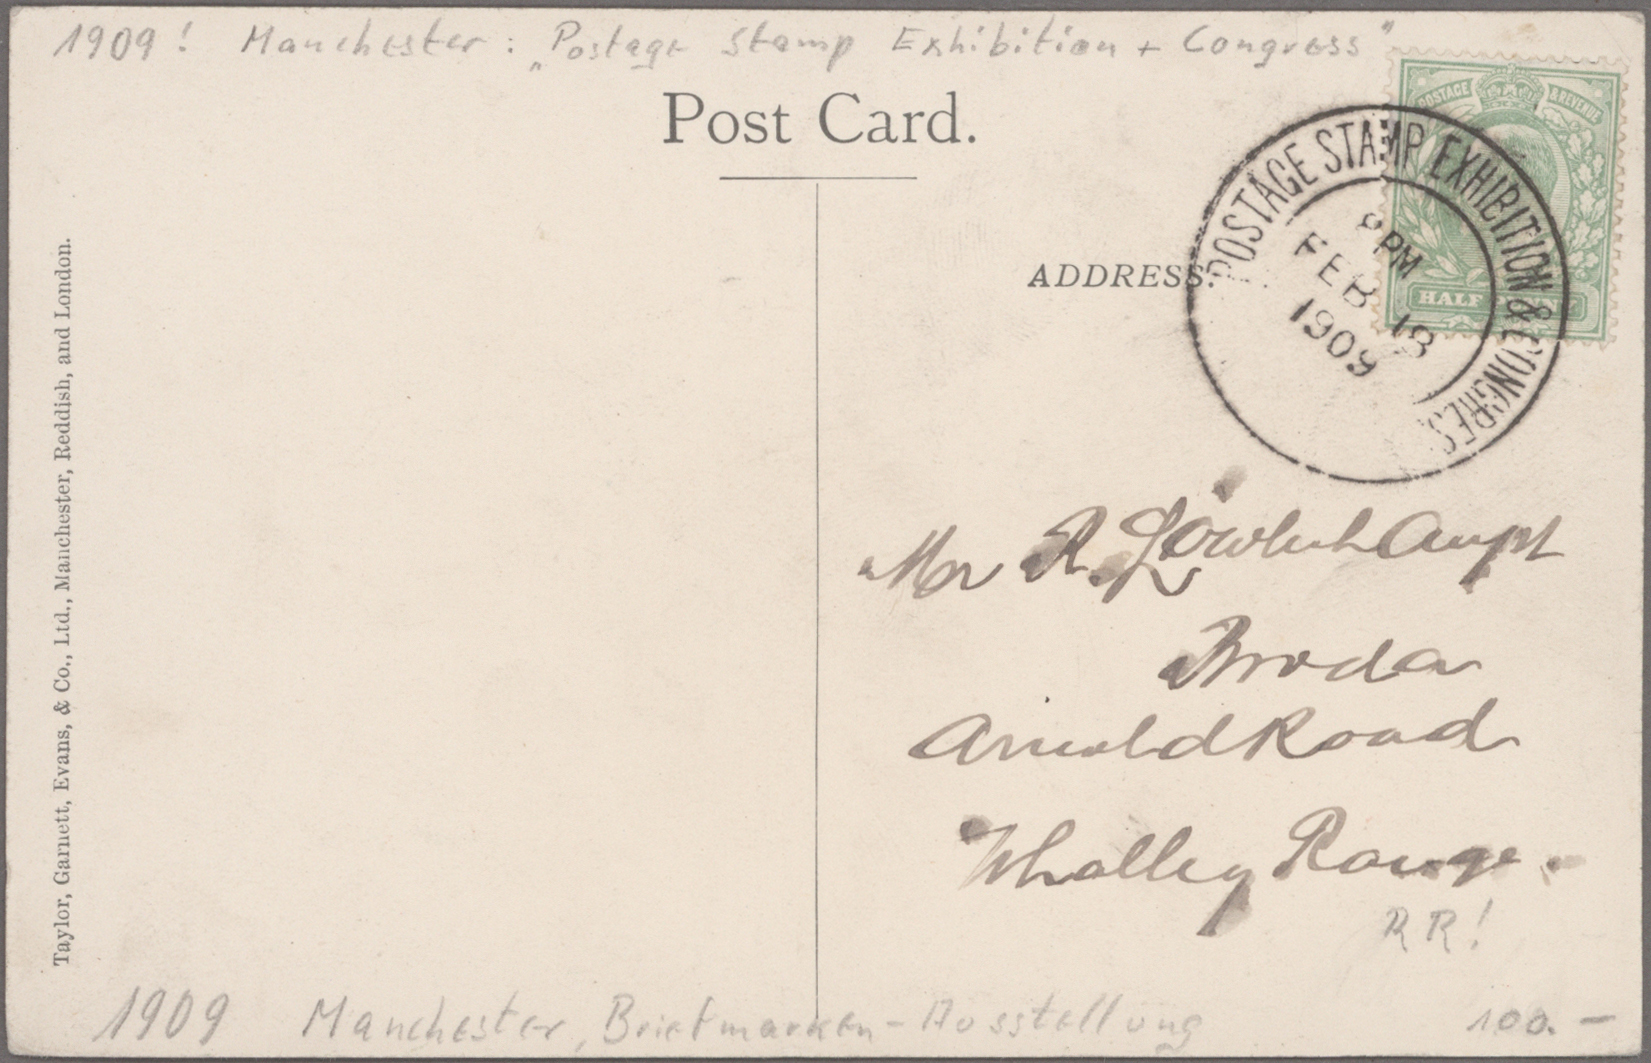 1909! Manchester: „Postage Stamp Exhibition + Congress"
Post Card.
POSTAGE & REVENUE
HALF PENNY
POSTAGE STAMP EXHIBITION & CONGRES
8 PM
FEB 18
1909
ADDRESS.
Taylor, Garnett, Evans, & Co., Ltd., Manchester, Reddish, and London.
Mr R.
Arnold Road
Whalley Range.
RR!
1909 Manchester, Briefmarken-Ausstellung 100.—